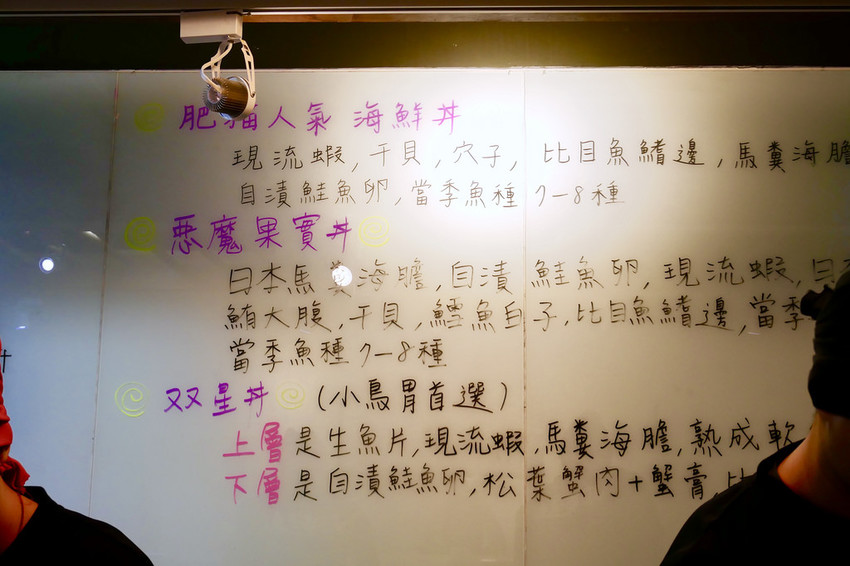 肥貓人氣 海鮮丼
現流蝦,干貝,穴子,比目魚鰭邊,馬糞海膽
自漬鮭魚卵,當季魚種 7-8種
惡魔果實丼
日本馬糞海膽,自漬 鮭魚卵,現流蝦,日本
鮪大腹,干貝,鱈魚白子,比目魚鰭邊,當季
當季魚種 7-8種
双星丼 (小鳥胃首選)
上層是生魚片,現流蝦,馬糞海膽,熟成軟
下層是自漬鮭魚卵,松葉蟹肉+蟹膏,比